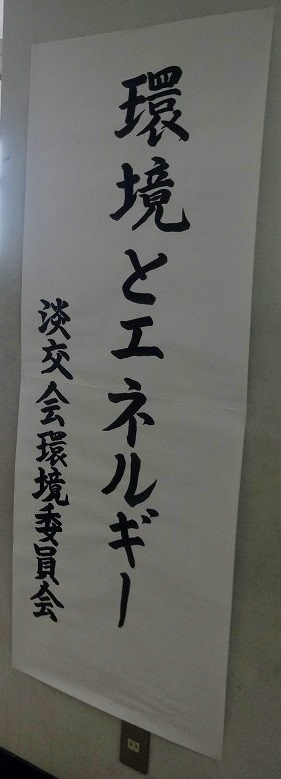 環境とエネルギー
淡交会環境委員会